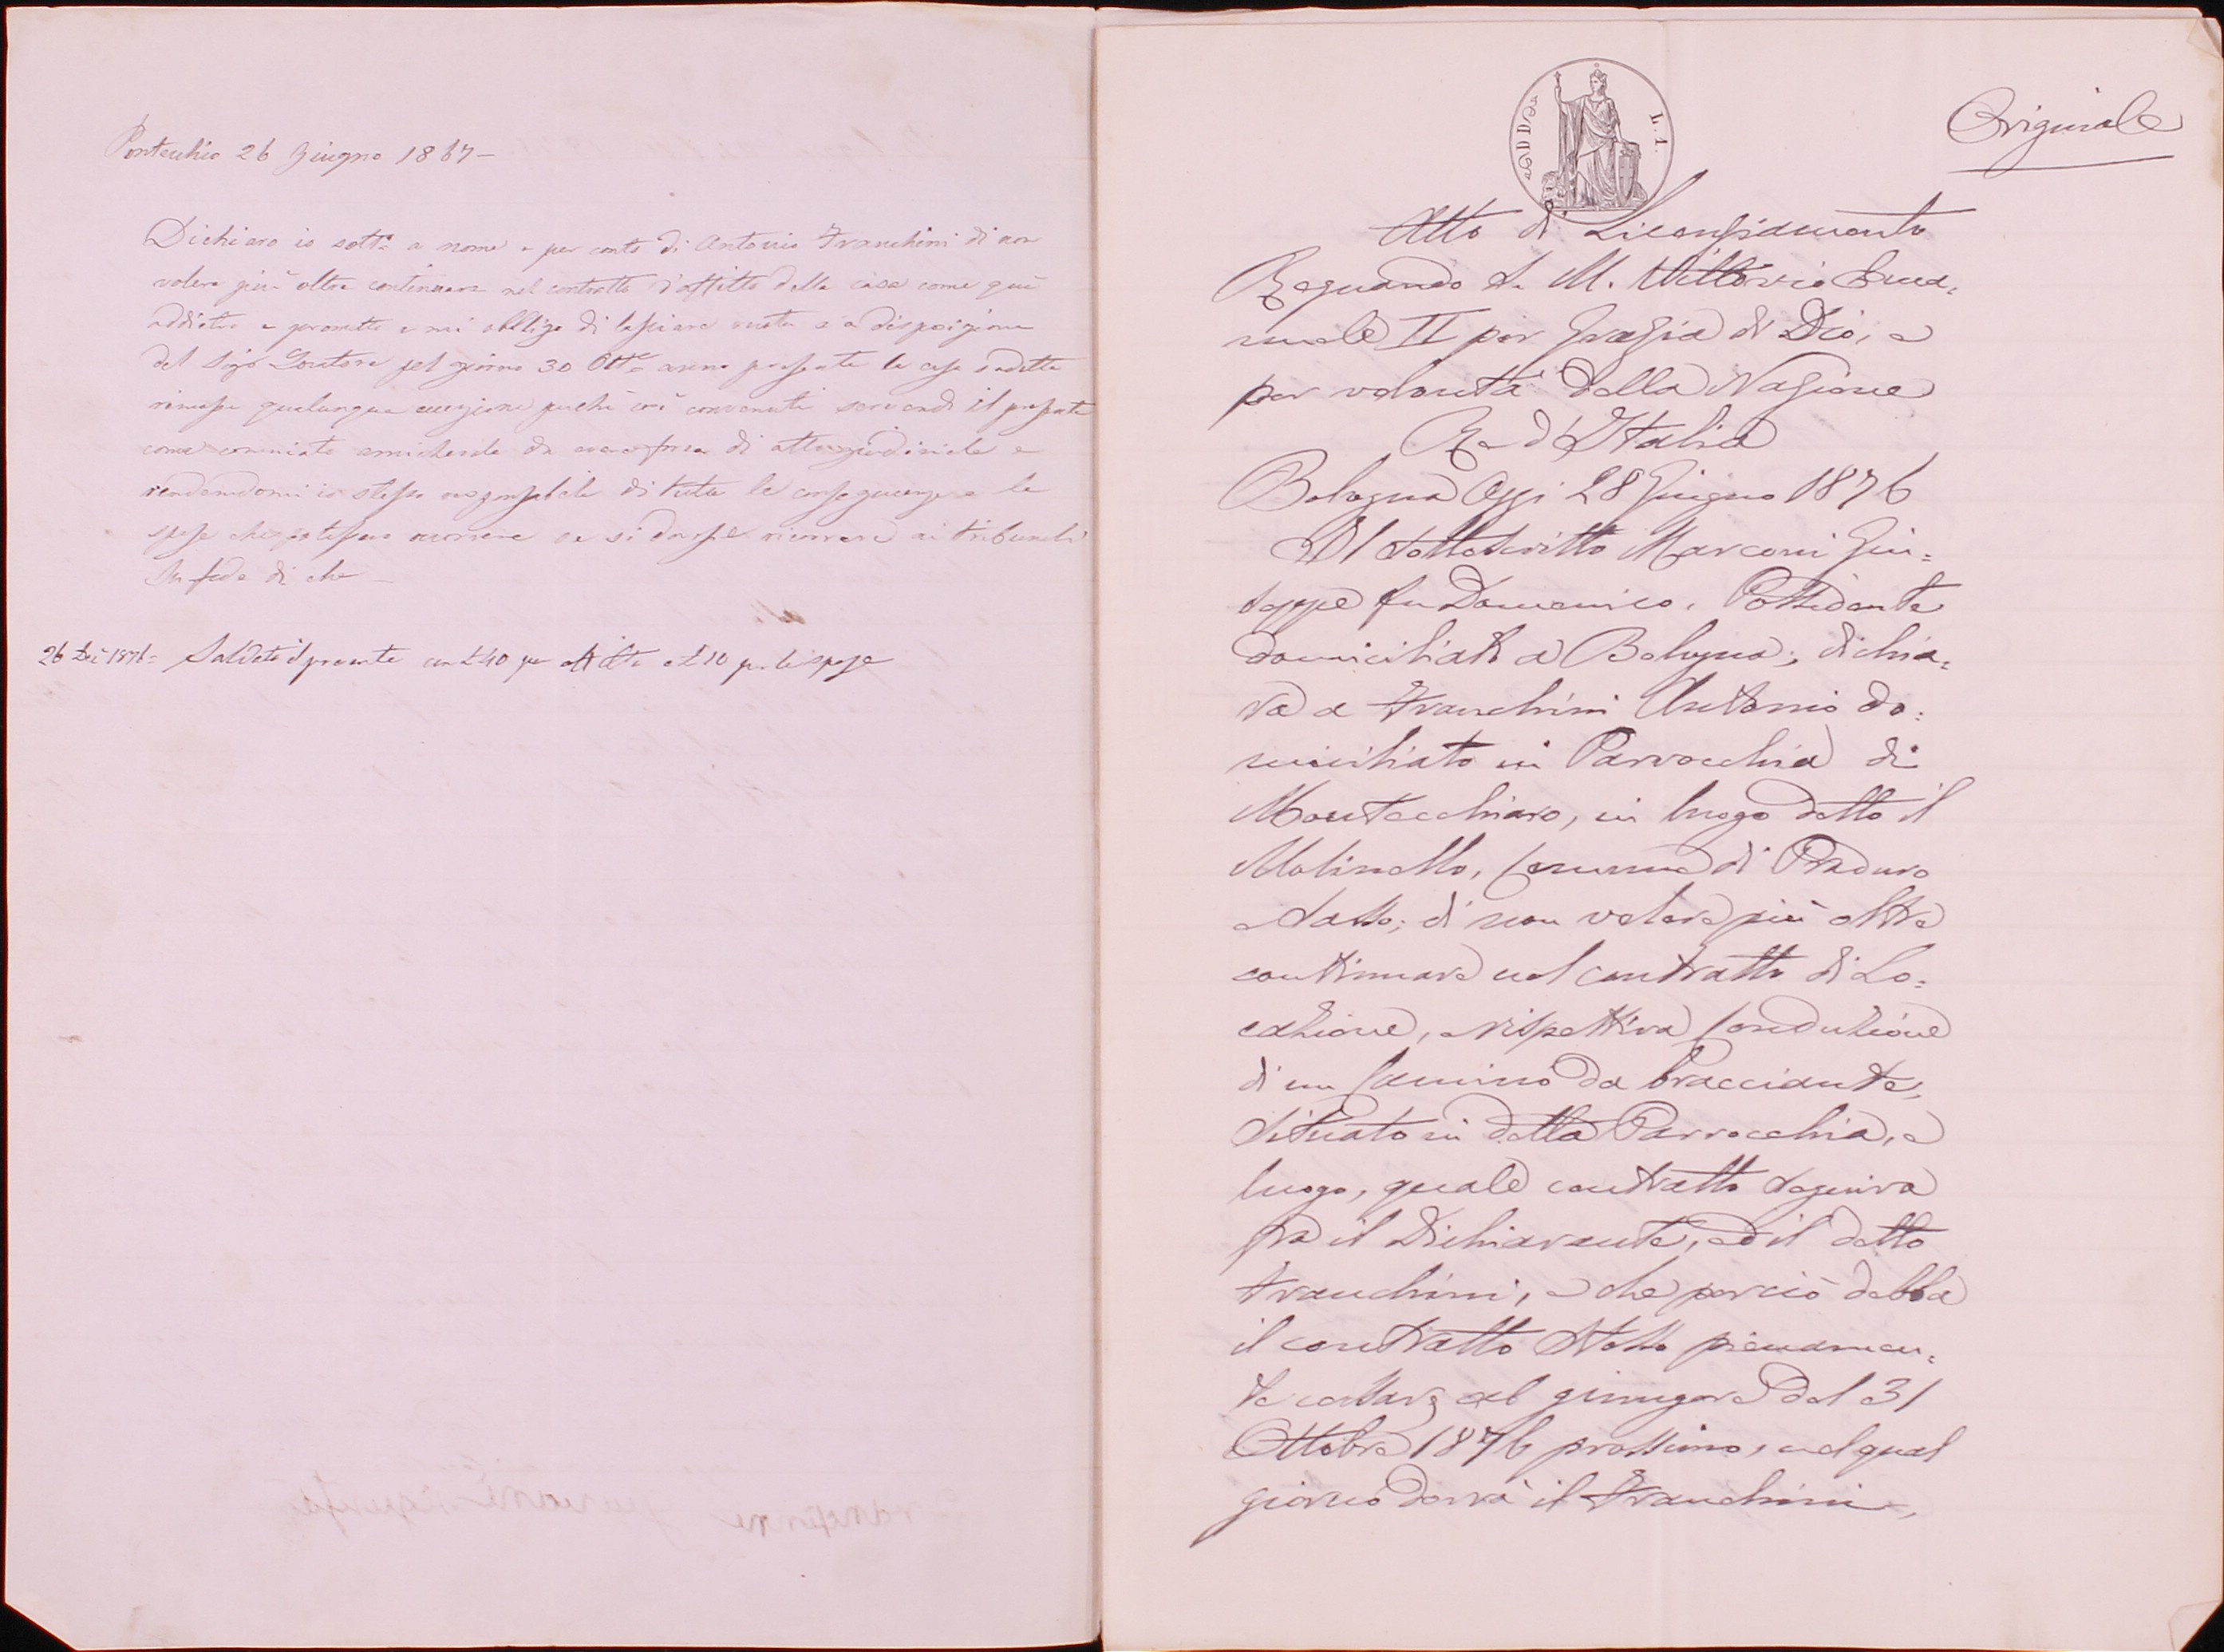 Pontecchio 26 Giugno 1867 -
Dichiaro io sott.º a nome e per conto di Antonio Franchini di non
volere più oltre continuare nel contratto d'affitto della casa come qui
addietro e prometto e mi obbligo di lasciare vuota e a disposizione
del Sigr Locatore pel giorno 30 Ott.e anno presente la casa sudetta
rimossa qualunque eccezione perchè così convenuti servendo il presente
come comiato amichevole da avere forza di atto giudiziale e
rendendomi io stesso responsabile di tutte le conseguenze e le
spese che potessero occorrere se si dovesse ricorrere ai tribunali
In fede di che -
26 Dec 1876 = Saldato il presente con £ 40 per affitto e £ 10 per le spese
L. 1.
Originale
Atto di Licenziamento
Regnando S. M. Vittorio Ema=
nuele II per Grazia di Dio, e
per volontà della Nazione
Re d'Italia
Bologna Oggi 28 Giugno 1876
Il sottoscritto Marconi Giu=
seppe fu Domenico, Possidente
domiciliato a Bologna; dichia=
ra a Franchini Antonio do=
miciliato in Parrocchia di
Montecchiaro, in luogo detto il
Molinello, Comune di Praduro
e Sasso; di non volere più oltre
continuare nel contratto di Lo=
cazione, e rispettiva Conduzione
di un Camino da bracciante,
situato in detta Parrocchia, e
luogo, quale contratto seguiva
fra il Dichiarante, ed il detto
Franchini, e che perciò debba
il contratto stesso pienamen=
te cessare al giungere del 31
Ottobre 1876 prossimo, nel qual
giorno dovrà il Franchini,